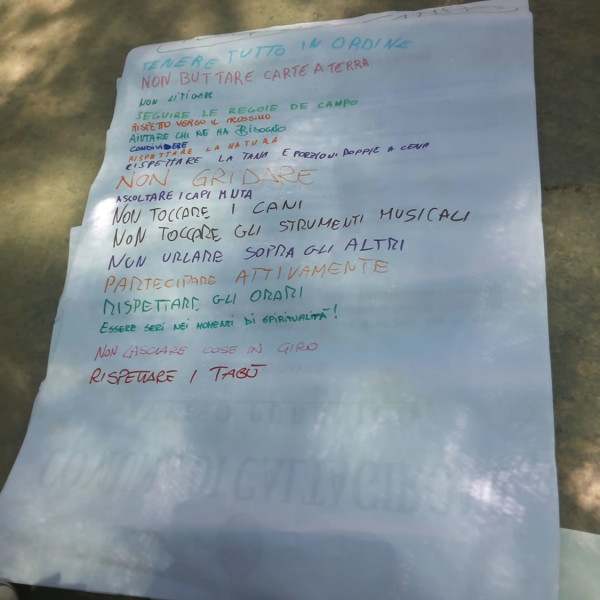 TENERE TUTTO IN ORDINE
NON BUTTARE CARTE A TERRA
NON LITIGARE
SEGUIRE LE REGOLE DE CAMPO
RISPETTO VERSO IL PROSSIMO
AIUTARE CHI NE HA BISOGNO
CONDIVIDERE
RISPETTARE LA NATURA
RISPETTARE LA TANA E PORZIONI DOPPIE A CENA
NON GRIDARE
ASCOLTARE I CAPI MUTA
NON TOCCARE I CANI
NON TOCCARE GLI STRUMENTI MUSICALI
NON URLARE SOPRA GLI ALTRI
PARTECIPARE ATTIVAMENTE
RISPETTARE GLI ORARI
ESSERE SERI NEI MOMENTI DI SPIRITUALITÀ!
NON LASCIARE COSE IN GIRO
RISPETTARE I TABÙ
COMUNE DI CALTAGIRONE